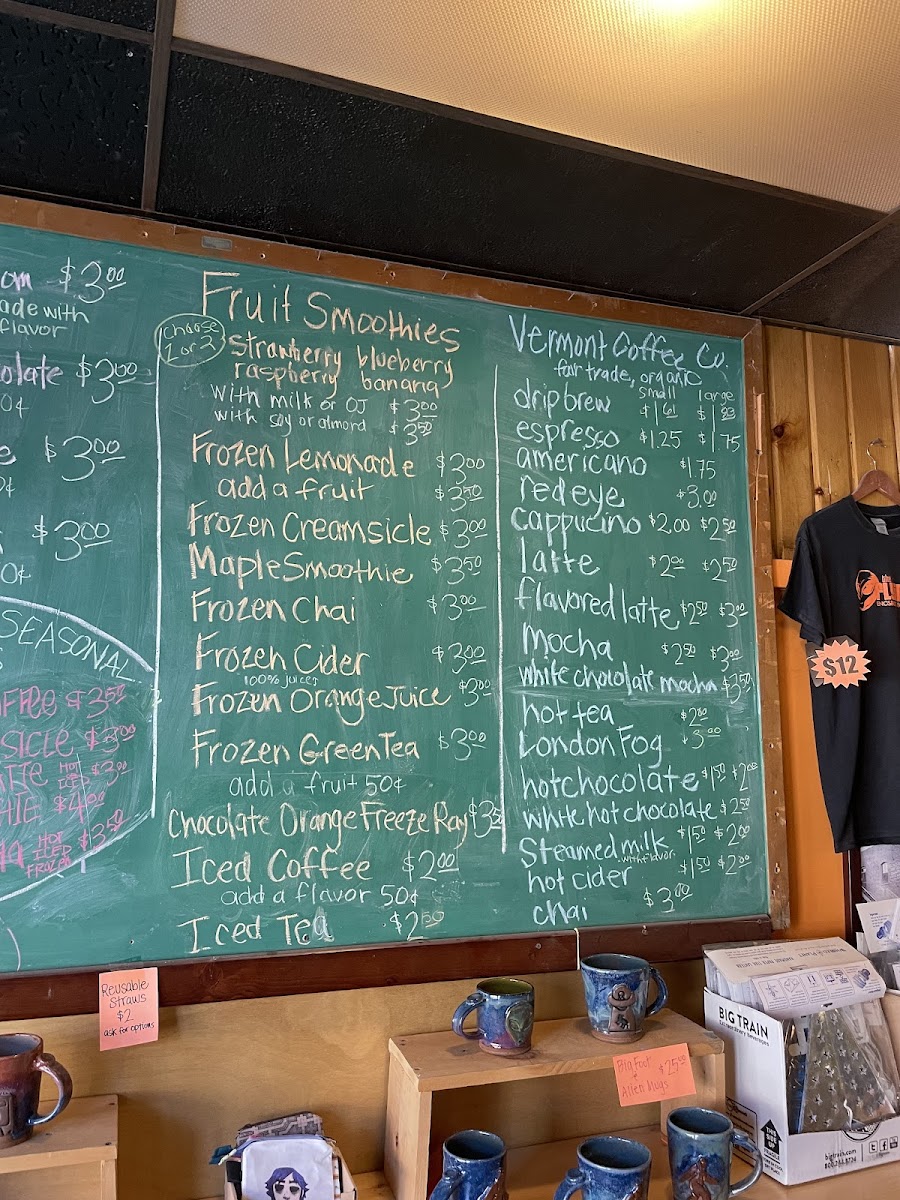 $3.00
ade with
flavor
olate $3.00
0¢
$3.00
0¢
$3.00
0¢
SEASONAL
FFEE $3.50
SICLE $3.00
HOT
ICED $3.00
HIE $4.00
HOT
ICED
FROZEN $3.50
Fruit Smoothies
choose
1 or 3
strawberry blueberry
raspberry banana
with milk or OJ $3.00
with soy or almond $3.50
Frozen Lemonade $3.00
add a fruit $3.50
Frozen Creamsicle $3.00
Maple Smoothie $3.50
Frozen Chai $3.00
Frozen Cider $3.00
100% juices
Frozen Orange Juice $3.00
Frozen Green Tea $3.00
add a fruit 50¢
Chocolate Orange Freeze Ray $3.50
Iced Coffee $2.00
add a flavor 50¢
Iced Tea $2.50
Vermont Coffee Co.
fair trade, organic
small large
drip brew $1.61
espresso $1.25 $1.75
americano $1.75
redeye $3.00
cappucino $2.00 $2.50
latte $2.00 $2.50
flavored latte $2.50 $3.00
Mocha $2.50 $3.00
white chocolate mocha $3.50
hot tea $2.00
London Fog $3.00
hot chocolate $1.50 $2.00
white hot chocolate $2.50
Steamed milk $1.50 $2.00
with flavor
hot cider $1.50 $2.00
chai $3.00
$12
Reusable
Straws
$2
ask for options
Big Foot
+
Alien Mugs $25.00
BIG TRAIN
bigtrain.com
800.244.8724